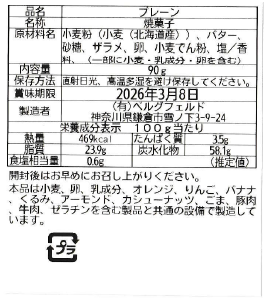 品名 プレーン
名称 焼菓子
原材料名 小麦粉(小麦(北海道産))、バター、
砂糖、ザラメ、卵、小麦でん粉、塩/香
料、(一部に小麦・乳成分・卵を含む)
内容量 90g
保存方法 直射日光、高温多湿を避け保存してください。
賞味期限 2026年3月8日
製造者 (有)ベルグフェルド
神奈川県鎌倉市雪ノ下3-9-24
栄養成分表示 100g当たり
熱量 469kcal たんぱく質 3.5g
脂質 23.9g 炭水化物 58.1g
食塩相当量 0.6g (推定値)
開封後はお早めにお召し上がりください。
本品は小麦、卵、乳成分、オレンジ、りんご、バナナ
、くるみ、アーモンド、カシューナッツ、ごま、豚肉
、牛肉、ゼラチンを含む製品と共通の設備で製造して
います。
プラ